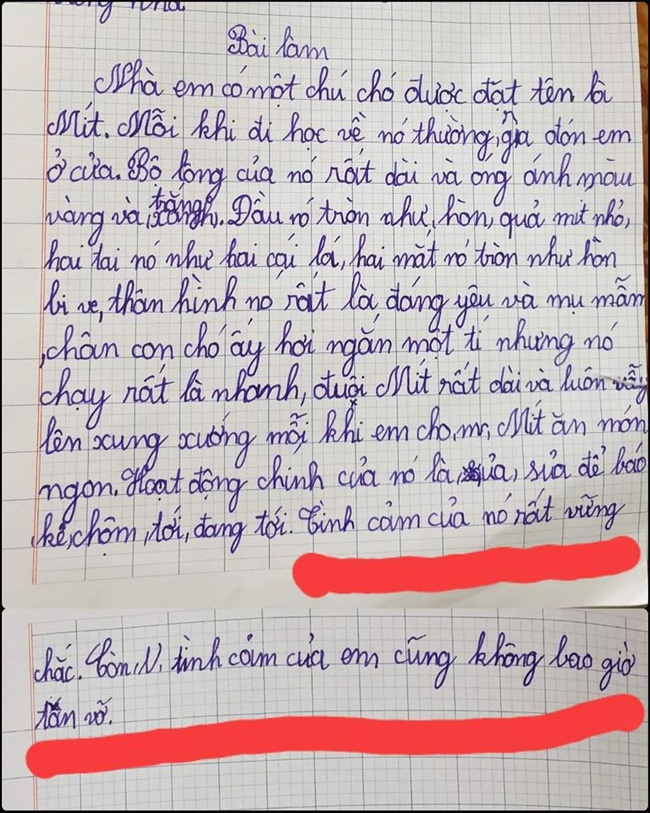 Bài làm
Nhà em có một chú chó được đặt tên là
Mít. Mỗi khi đi học về nó thường, ra đón em
ở cửa. Bộ lông của nó rất dài và ong ánh màu
vàng và, trắng. Đầu nó tròn như, hòn, quả mít nhỏ,
hai tai nó như hai cái lá, hai mắt nó tròn như hòn
bi ve, thân hình nó rất là, đáng yêu và mụ mẫm
,chân con chó ấy hơi ngắn một tí nhưng nó
chạy rất là nhanh, đuôi Mít rất dài và luôn vẫy
lên xung xuống mỗi khi em cho, mr, Mít ăn món
ngon. Hoạt động chính của nó là, sủa, sủa để báo
kẻ, chộm, tới, đang tới. Tình cảm của nó rất vững
chắc. Còn, N, tình cảm của em cũng không bao giờ
tan vỡ.